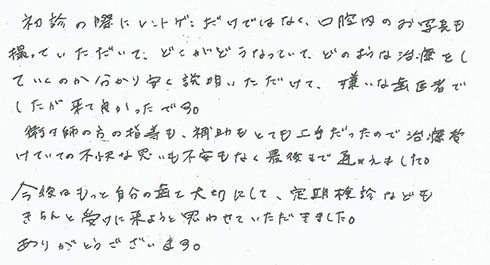 初診の際にレントゲンだけではなく、口腔内のお写真も
撮っていただいて、どこがどうなっていて、どのような治療をし
ていくのか分かり安く説明いただけて、嫌いな歯医者で
したが来て良かったです。
衛生師の方の指導も、補助もとても上手だったので治療受
けていての不快な思いも不安もなく最後まで通えました。
今後はもっと自分の歯を大切にして、定期検診なども
きちんと受けに来ようと思わせていただきました。
ありがとうございます。